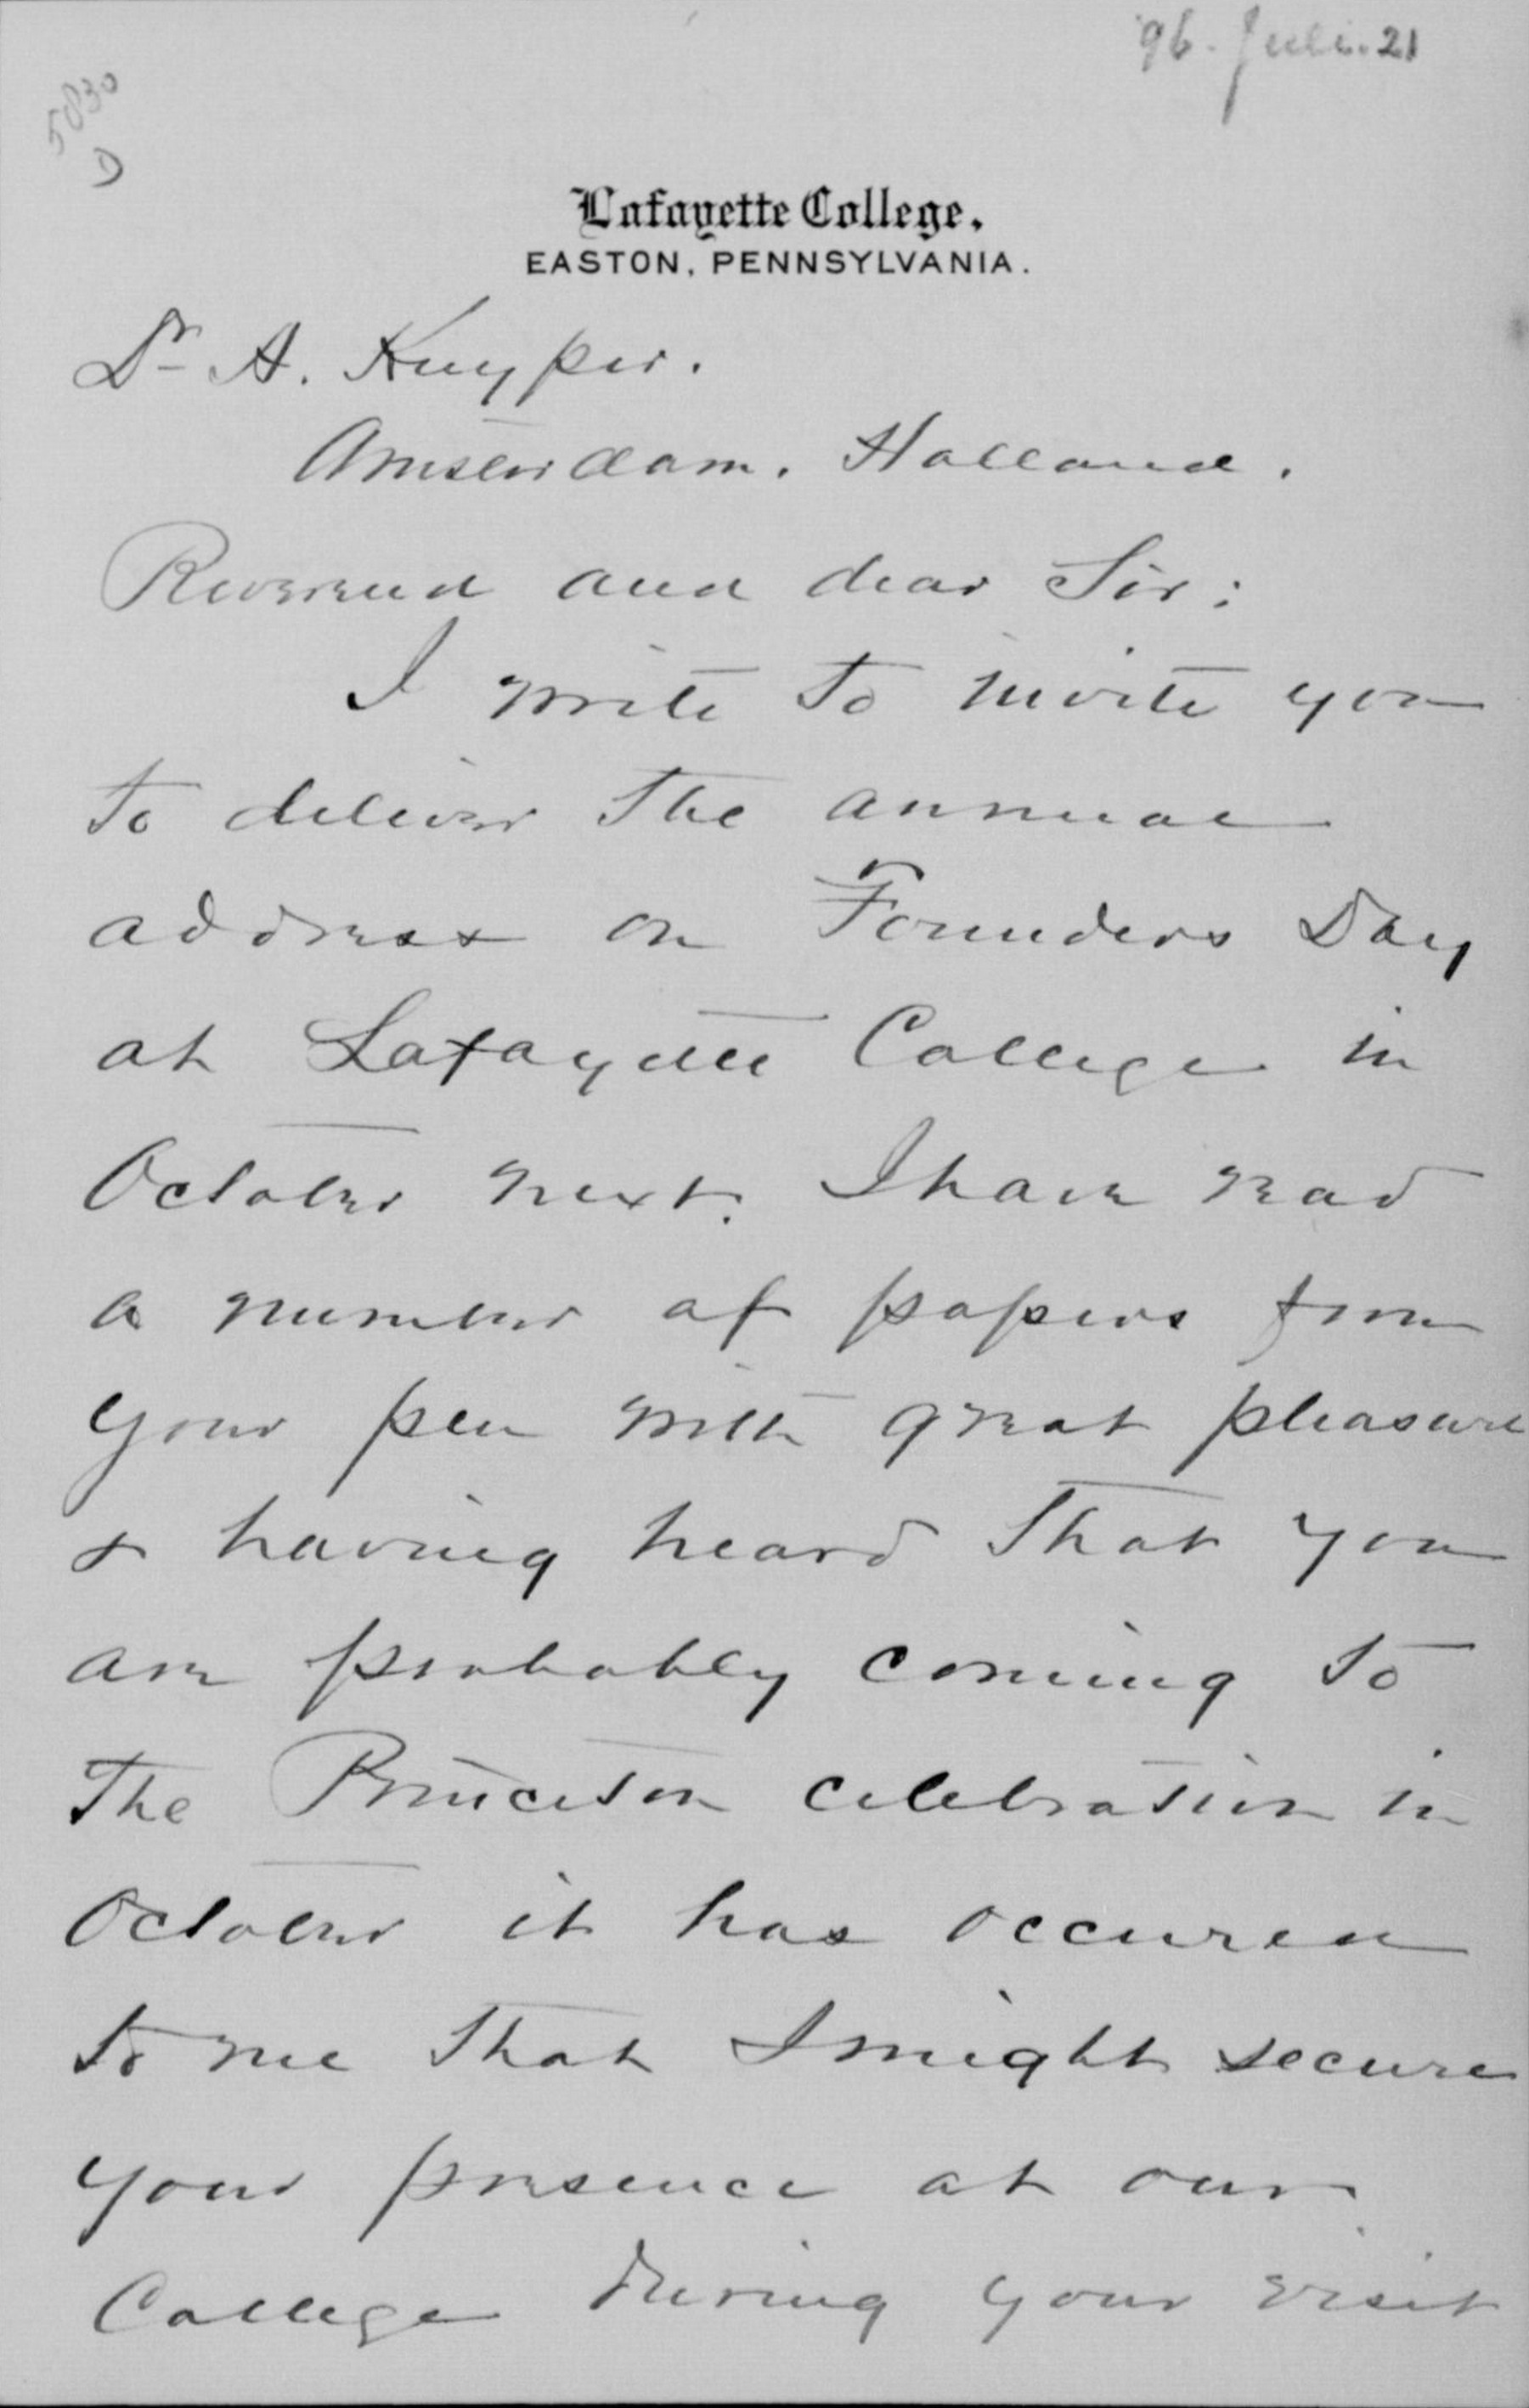 '96. Juli. 21
5830
D
Lafayette College,
EASTON, PENNSYLVANIA.
Dr A. Kuyper.
Amsterdam. Holland.
Reverend and dear Sir:
I write to invite you
to deliver the annual
address on Founders Day
at Lafayette College in
October next. I have read
a number of papers from
your pen with great pleasure
& having heard that you
are probably coming to
the Princeton celebration in
October it has occured
to me that I might secure
your presence at our
College during your visit